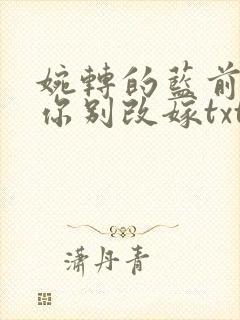 婉轉的藍前
你別改嫁txt
瀟丹青